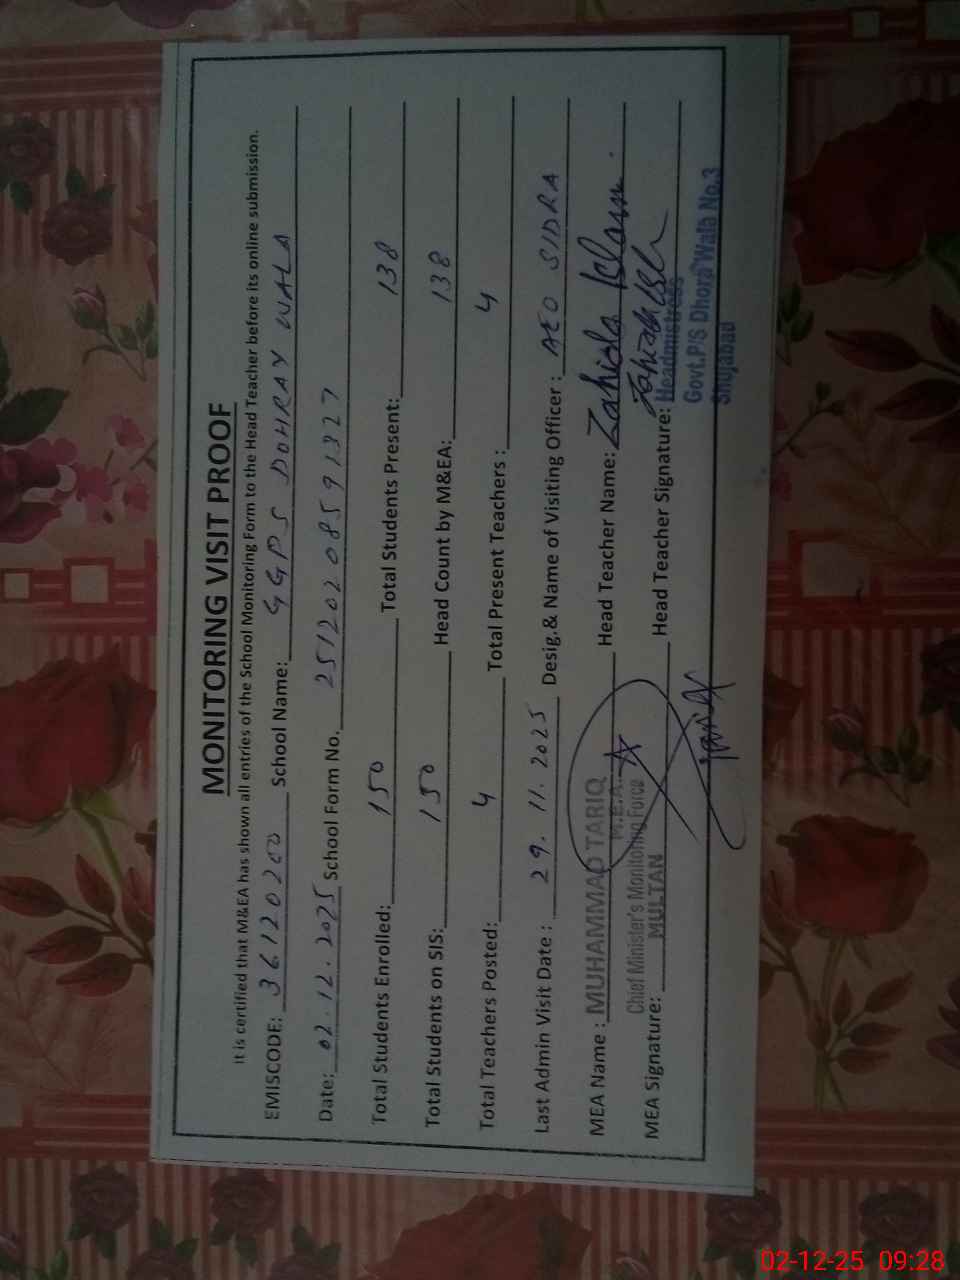 MONITORING VISIT PROOF
It is certified that M&EA has shown all entries of the School Monitoring Form to the Head Teacher before its online submission.
EMISCODE: 36120200 School Name: GGPS DOHRAY WALA
Date: 02.12.2025 School Form No. 25120208591327
Total Students Enrolled: 150 Total Students Present: 138
Total Students on SIS: 150 Head Count by M&EA: 138
Total Teachers Posted: 4 Total Present Teachers : 4
Last Admin Visit Date : 29.11.2025 Desig.& Name of Visiting Officer : AEO SIDRA
MEA Name : MUHAMMAD TARIQ Head Teacher Name: Zahida Islam
M.E.A.
Chief Minister's Monitoring Force
MULTAN
MEA Signature: Head Teacher Signature:
Headmistress
Govt.P/S Dhora Wala No.3
Shujabad
02-12-25 09:28